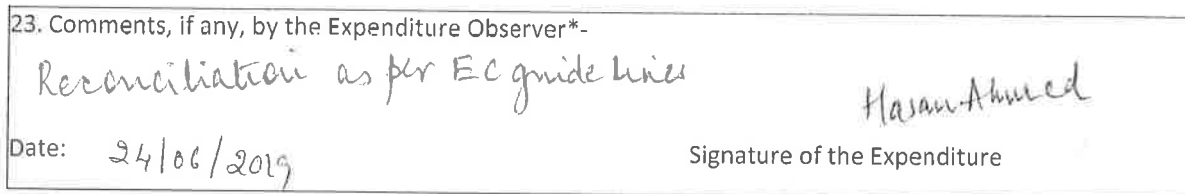 23. Comments, if any, by the Expenditure Observer*-
Reconciliation as per EC guide lines
Hasan Ahmed
Date: 24/06/2019 Signature of the Expenditure